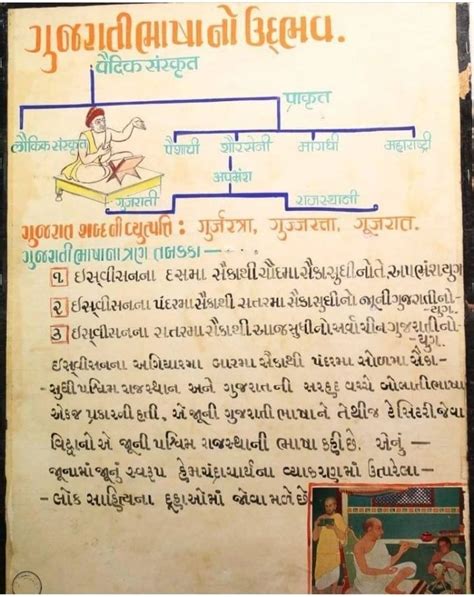 ગુજરાતી ભાષાનો ઉદ્ભવ.
વૈદિક સંસ્કૃત
પ્રાકૃત
લૌકિક સંસ્કૃત પૈશાચી શૌરસેની માગધી મહારાષ્ટ્રી
અપભ્રંશ
ગુજરાતી રાજસ્થાની
ગુજરાત શબ્દની વ્યુત્પત્તિ : ગુર્જરત્રા, ગુજ્જરત્તા, ગૂજરાત.
ગુજરાતી ભાષાના ત્રણ તબક્કા:—
૧ ઇસ્વીસનના દસમા સૈકાથી ચૌદમા સૈકા સુધીનો તે અપભ્રંશયુગ
૨ ઇસ્વીસનના પંદરમા સૈકાથી સત્તરમા સૈકા સુધીનો જૂની ગુજરાતીનો-
-યુગ.
૩ ઇસ્વીસનના સત્તરમા સૈકાથી આજ સુધીનો અર્વાચીન ગુજરાતીનો-
-યુગ.
ઇસ્વીસનના અગિયારમા બારમા સૈકાથી પંદરમા સોળમા સૈકા-
-સુધી પશ્ચિમ રાજસ્થાન અને ગુજરાતની સરહદ વચ્ચે બોલાતી ભાષા
એકજ પ્રકારની હતી, એ જૂની ગુજરાતી ભાષાને તેથી જ ટેસિટરી જેવા
વિદ્વાનોએ જૂની પશ્ચિમ રાજસ્થાની ભાષા કહી છે. એનું —
જૂનામાં જૂનું સ્વરૂપ હેમચંદ્રાચાર્યના વ્યાકરણમાં ઉતારેલા—
- લોક સાહિત્યના દૂહાઓમાં જોવા મળે છે